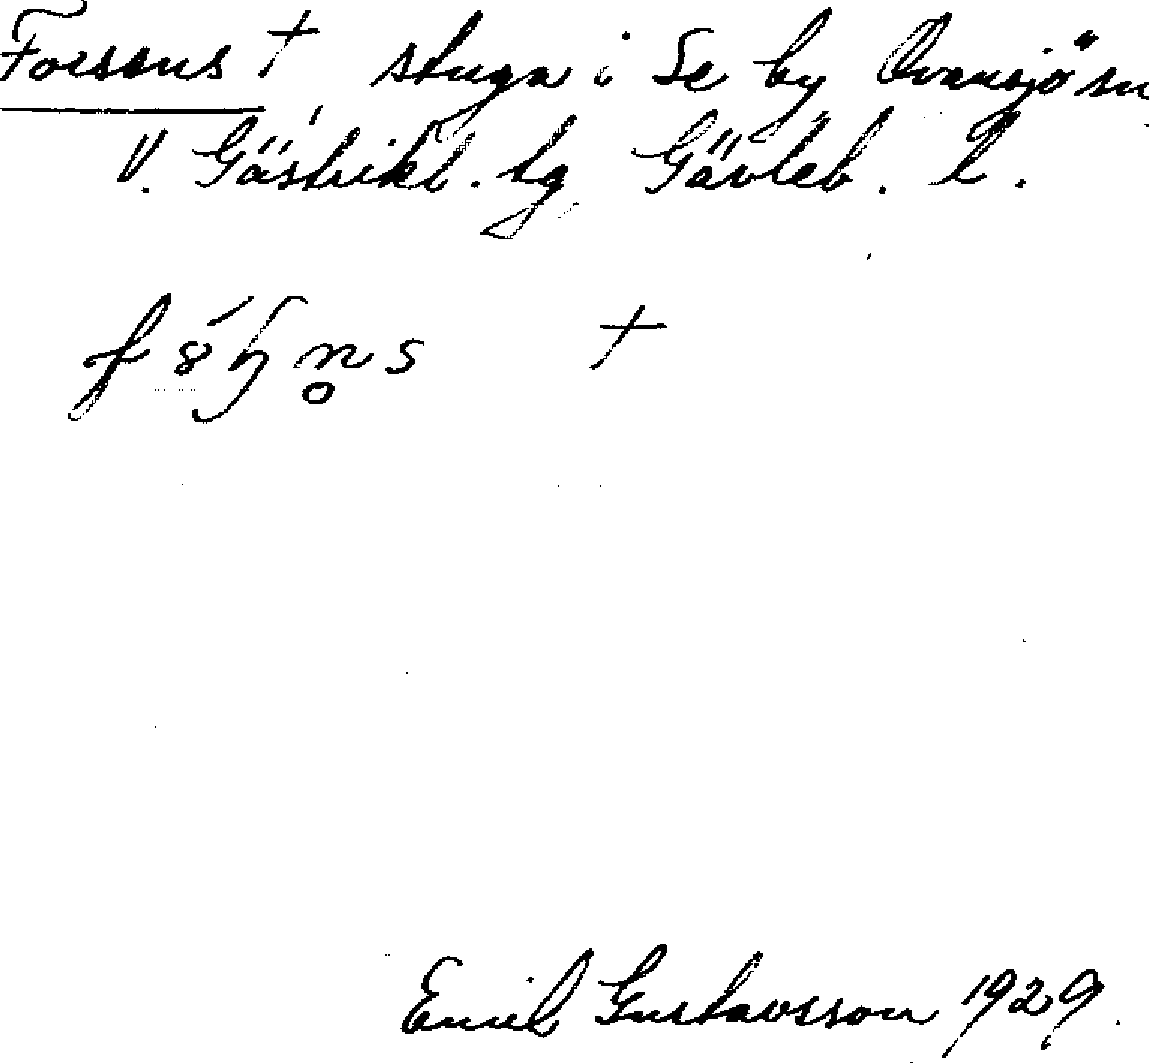 Forsens †, stuga i Se by Ovansjö sn
V. Gästrikl. tg Gävleb. l.
†
Emil Gustavsson 1929.